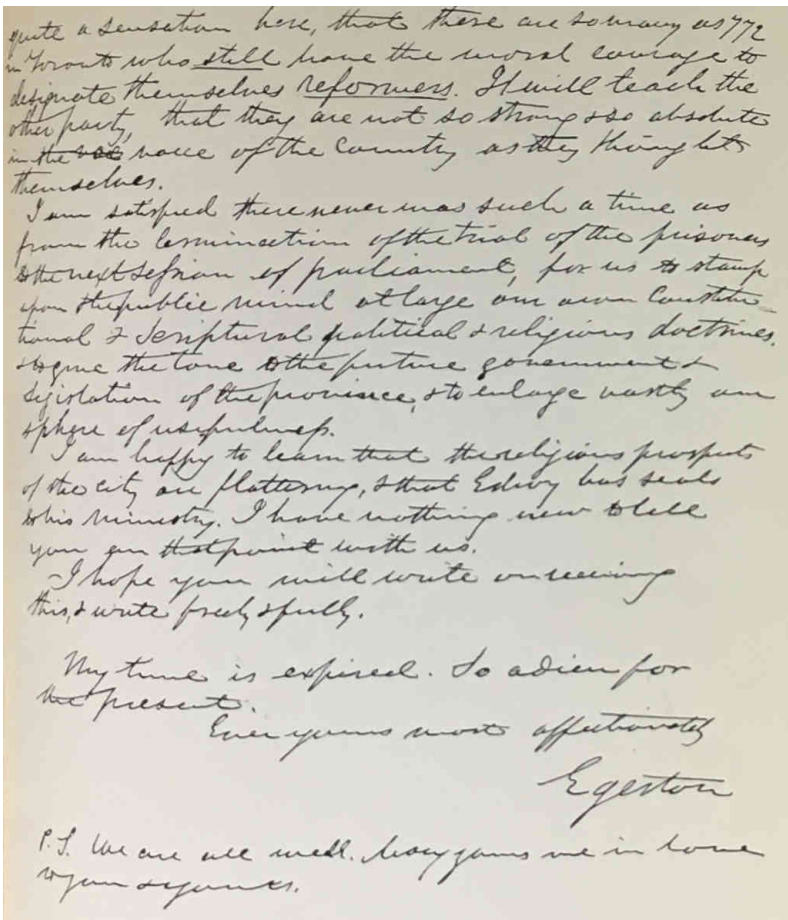 quite a sensation here, that there are so many as 772
in Toronto who still have the moral courage to
designate themselves reformers. It will teach the
other party, that they are not so strong & so absolute
in the voice of the Country as they thought
themselves.
I am satisfied there never was such a time as
from the termination of the trial of the prisoners
to the next session of parliament, for us to stamp
upon the public mind at large our own Constitu-
tional & Scriptural political & religious doctrines,
& to give the tone to the future government &
legislation of the province, & to enlarge vastly our
sphere of usefulness.
I am happy to learn that the religious prospects
of the city are flattering, & that Edwy has seals
to his ministry. I have nothing new to tell
you on that point with us.
I hope you will write on receiving
this, & write freely & fully.
My time is expired. So adieu for
the present.
Ever yours most affectionately
Egerton
P.S. We are all well. Mary joins me in love
to you & yours.